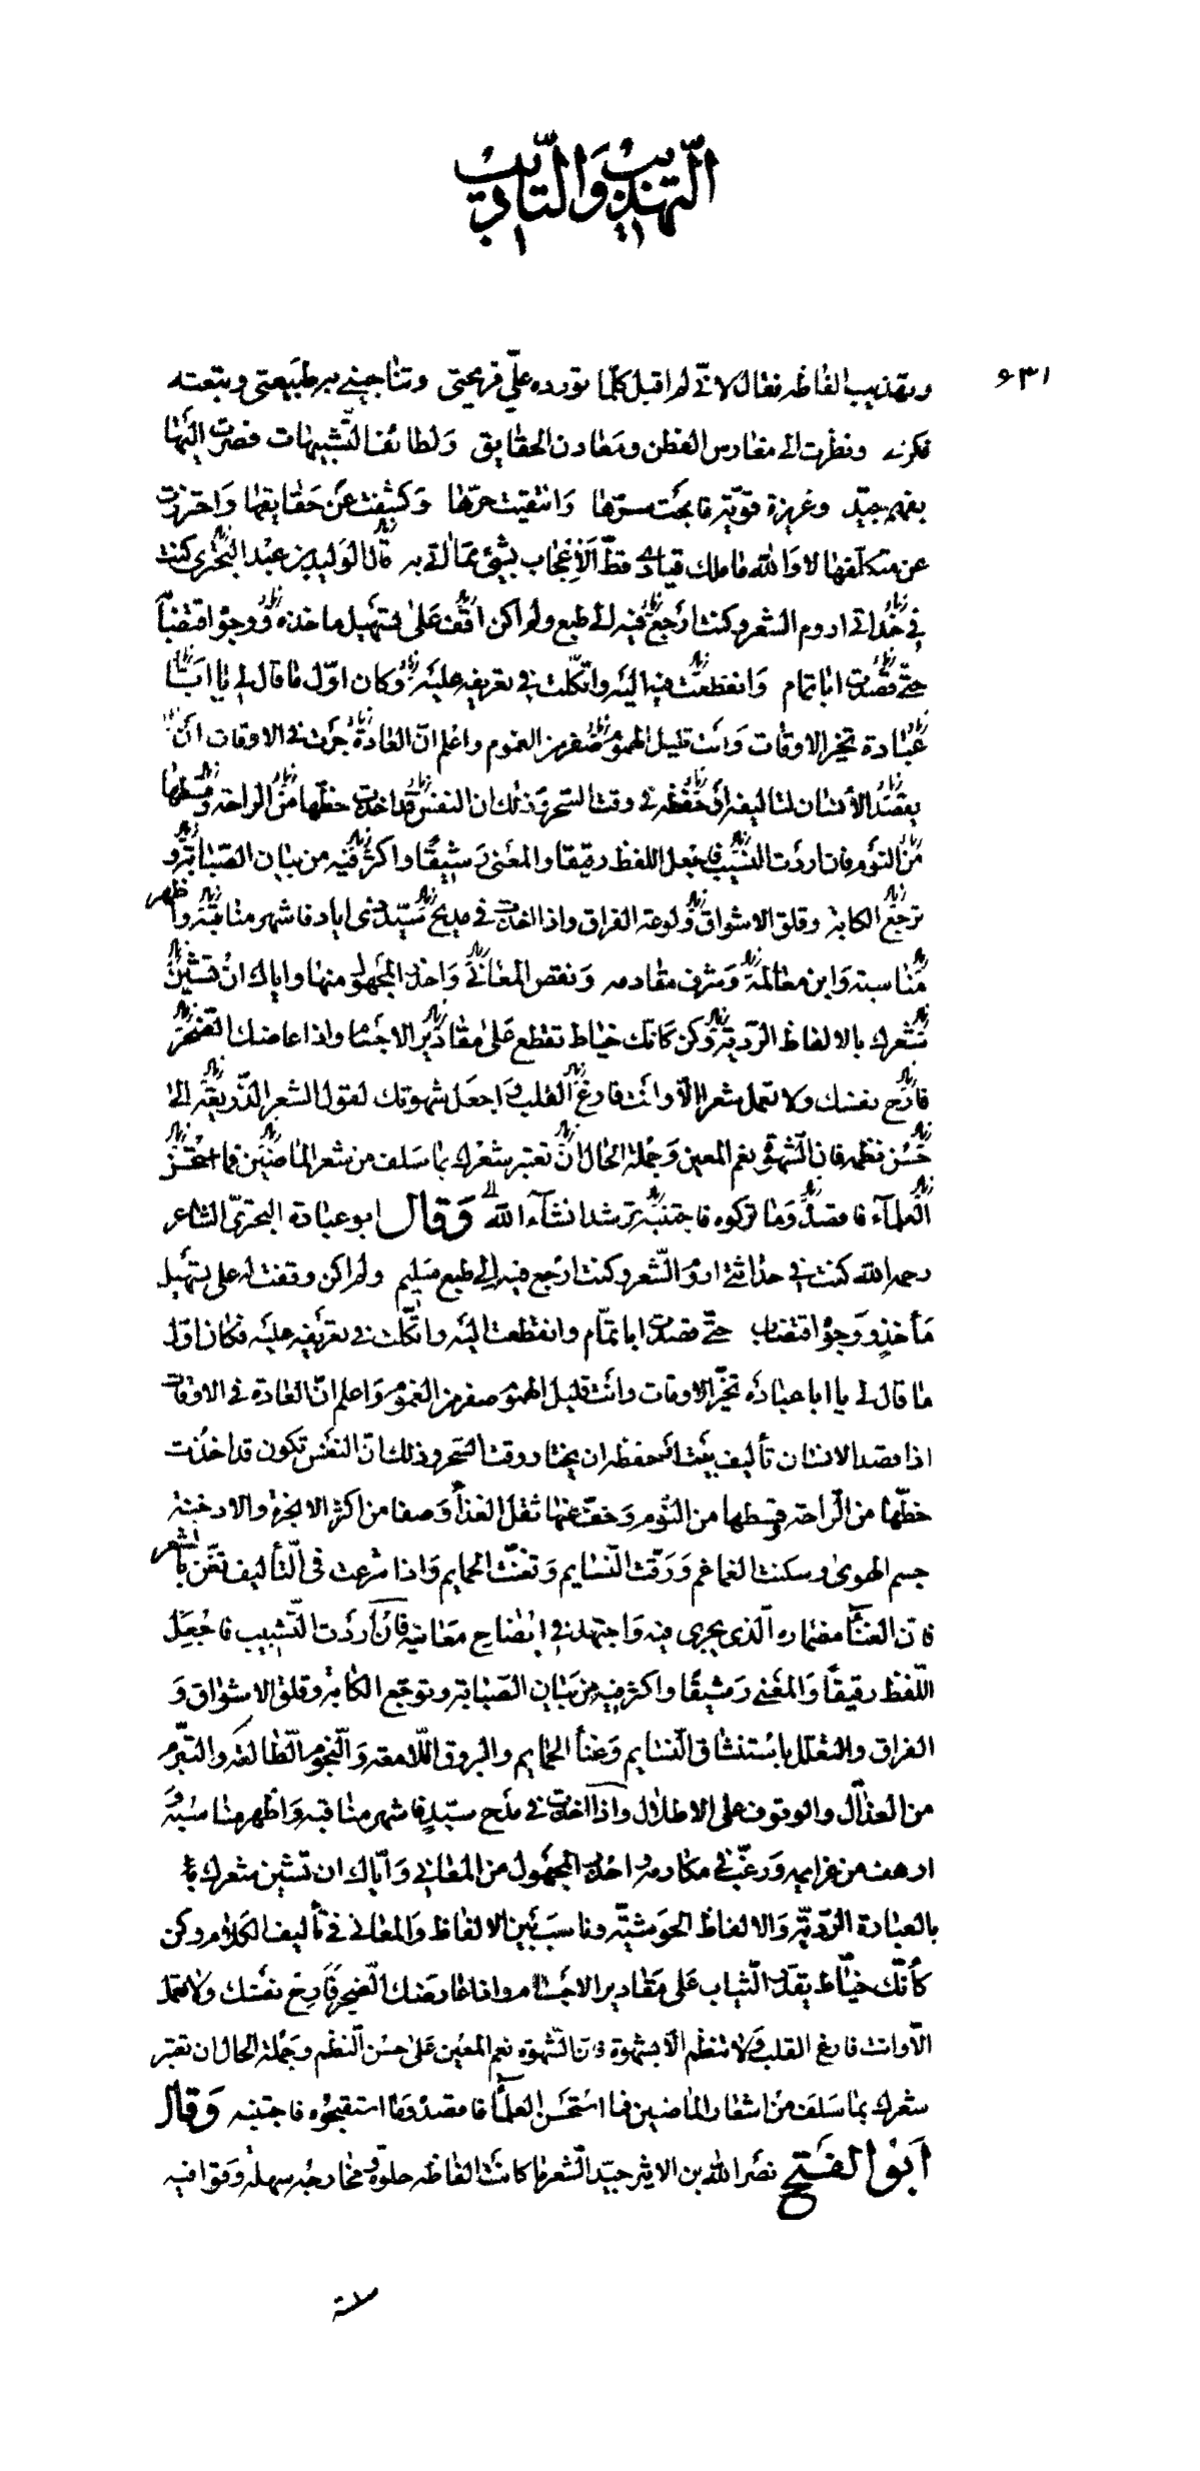 التهذيب والتأديب
٦٣١
وبتهذيب الفاظه فقال لاني لم اقبل كلما تورده علي قريحتي وتناجيني به طبيعتي ويبعثه
فكري ونظرت الى مغارس الفطن ومعادن الحقايق ولطائف التشبيهات فصرت اليها
بفهم جيد وغريزة قوية فاحكمت سبرها وانتقيت حرها وكشفت عن حقايقها واحترزت
عن متكلفها لا والله ما ملك قيادي قط الاعجاب بشئ مما اتي به قال الوليد بن عبد البحتري كنت
في حداثتي اروم الشعر وكنت ارجع فيه الى طبع ولم اكن اقف على تسهيل ماخذه ووجوه اقتضابه
حتى قصدت ابا تمام وانقطعت فيه اليه واتكلت في تعريفه عليه وكان اول ما قال لي يا ابا
عبادة تخير الاوقات وانت قليل الهموم صفر من الغموم واعلم ان العادة جرت في الاوقات ان
يقصد الانسان لتاليف او حفظه في وقت السحر وذلك ان النفس قد اخذت حظها من الراحة وقسطها
من النوم فان اردت النسيب فاجعل اللفظ رقيقا والمعنى رشيقا واكثر فيه من بيان الصبابة و
توجع الكابة وقلق الاشواق ولوعة الفراق واذا اخذت في مديح سيد ذي اياد فاشهر مناقبه واظهر
مناسبه وابن معالمه وشرف مقامه ونقص المعاني واحذر المجهول منها واياك ان تشين
شعرك بالالفاظ الردية وكن كانك خياط تقطع على مقادير الاجسام واذا عاضك الضجر
فارح نفسك ولا تعمل شعرا الا وانت فارغ القلب واجعل شهوتك لقول الشعر الذريعة الى
حسن نظمه فان الشهوة نعم المعين وجملة الحال ان تعتبر شعرك بما سلف من شعر الماضين فما استحسن
العلماء فاقصده وما تركوه فاجتنبه ترشد انشآء الله وقال ابو عبادة البحتري الشاعر
رحمه الله كنت في حداثتي اروم الشعر وكنت ارجع فيه الى طبع سليم ولم اكن وقفت له على تسهيل
مأخذ ووجوه اقتضاب حتى قصدت ابا تمام وانقطعت اليه واتكلت في تعريفه عليه فكان اول
ما قال لي يا ابا عبادة تخير الاوقات وانت قليل الهموم صفر من الغموم واعلم ان العادة في الاوقات
اذا قصد الانسان تأليف شئ او حفظه ان يختار وقت السحر وذلك ان النفس تكون قد اخذت
حظها من الراحة وقسطها من النوم وخف عنها ثقل الغذآ وصفا من اكثر الابخرة والادخنة
جسم الهوى وسكنت الغماغم ورقت النسايم وتغنت الحمايم واذا شرعت في التأليف تغن بالشعر
فان الغنآ مضماره الذي يجري فيه واجتهد في ايضاح معانيه فان اردت التشبيب فاجعل
اللفظ رقيقا والمعنى رشيقا واكثر فيه من بيان الصبابة وتوجع الكابة وقلق الاشواق و
الفراق والتعلل باستنشاق النسايم وغنآ الحمايم والبروق اللامعة والنجوم الطالعة والتبرم
من العذال والوقوف على الاطلال واذا اخذت في مدح سيد فاشهر مناقبه واظهر مناسبه و
ارهف من عزايمه ورغب في مكارمه واحذر المجهول من المعاني واياك ان تشين شعرك
بالعبارة الردية والالفاظ الحوشية وناسب بين الالفاظ والمعاني في تأليف الكلام وكن
كأنك خياط يقدر الثياب على مقادير الاجسام واذا عارضك الضجر فارح نفسك ولا تعمل
الا وانت فارغ القلب ولا تنظم الا بشهوة فان الشهوة نعم المعين على حسن النظم وجملة الحال ان تعتبر
شعرك بما سلف من اشعار الماضين فما استحسن العلمآ فاقصده وما استقبحوه فاجتنبه وقال
ابو الفتح نصر الله بن الاثير جيد الشعر ما كانت الفاظه حلوة ومخارجه سهلة وقوافيه